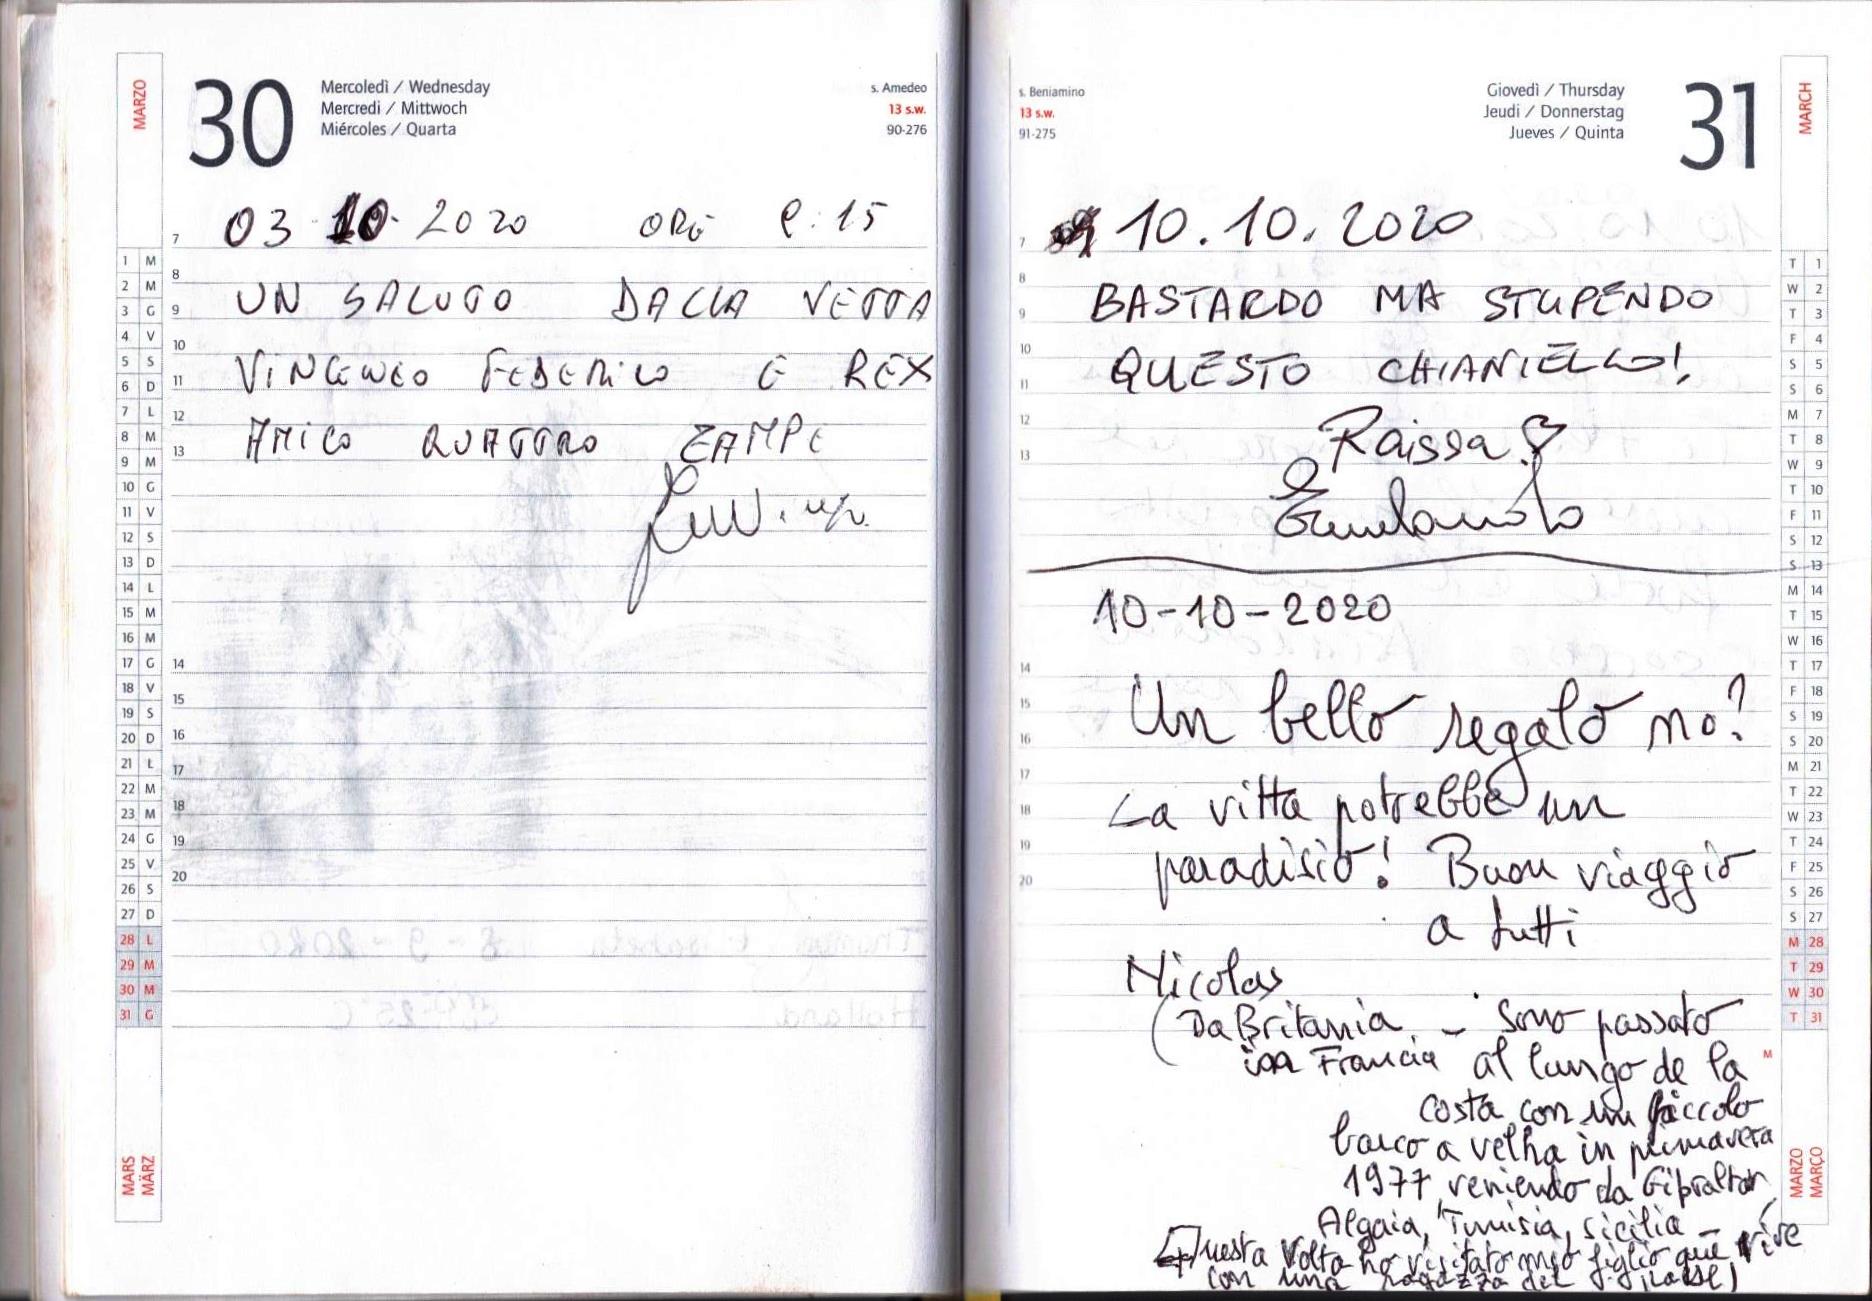 MARZO
30
Mercoledì / Wednesday
Mercredi / Mittwoch
Miércoles / Quarta
s. Amedeo
13 s.w.
90-276
03 10 2020 ORE 9:15
UN SALUTO DALLA VETTA
VINCENZO FEDERICO E REX
AMICO QUATTRO ZAMPE
7
8
9
10
11
12
13
14
15
16
17
18
19
20
1 M
2 M
3 G
4 V
5 S
6 D
7 L
8 M
9 M
10 G
11 V
12 S
13 D
14 L
15 M
16 M
17 G
18 V
19 S
20 D
21 L
22 M
23 M
24 G
25 V
26 S
27 D
28 L
29 M
30 M
31 G
MARS
MÄRZ
s. Beniamino
13 s.w.
91-275
Giovedì / Thursday
Jeudi / Donnerstag
Jueves / Quinta
31
MARCH
10.10.2020
BASTARDO MA STUPENDO
QUESTO CHIANIELLO!
Raissa
10-10-2020
Un bello regalo no?
La vitta potrebbe un
paradisio! Buon viaggio
a tutti
Nicolas
(Da Britania - Sono passato
in Francia al lungo de la
costa con un piccolo
barco a velha in primavera
1977, veniendo da Gibraltar,
Algaia, Tunisia, Sicilia -
Questa volta ho visitato mio figlio que vive
con una ragazza del
7
8
9
10
11
12
13
14
15
16
17
18
19
20
T 1
W 2
T 3
F 4
S 5
S 6
M 7
T 8
W 9
T 10
F 11
S 12
S 13
M 14
T 15
W 16
T 17
F 18
S 19
S 20
M 21
T 22
W 23
T 24
F 25
S 26
S 27
M 28
T 29
W 30
T 31
M
MARZO
MARÇO